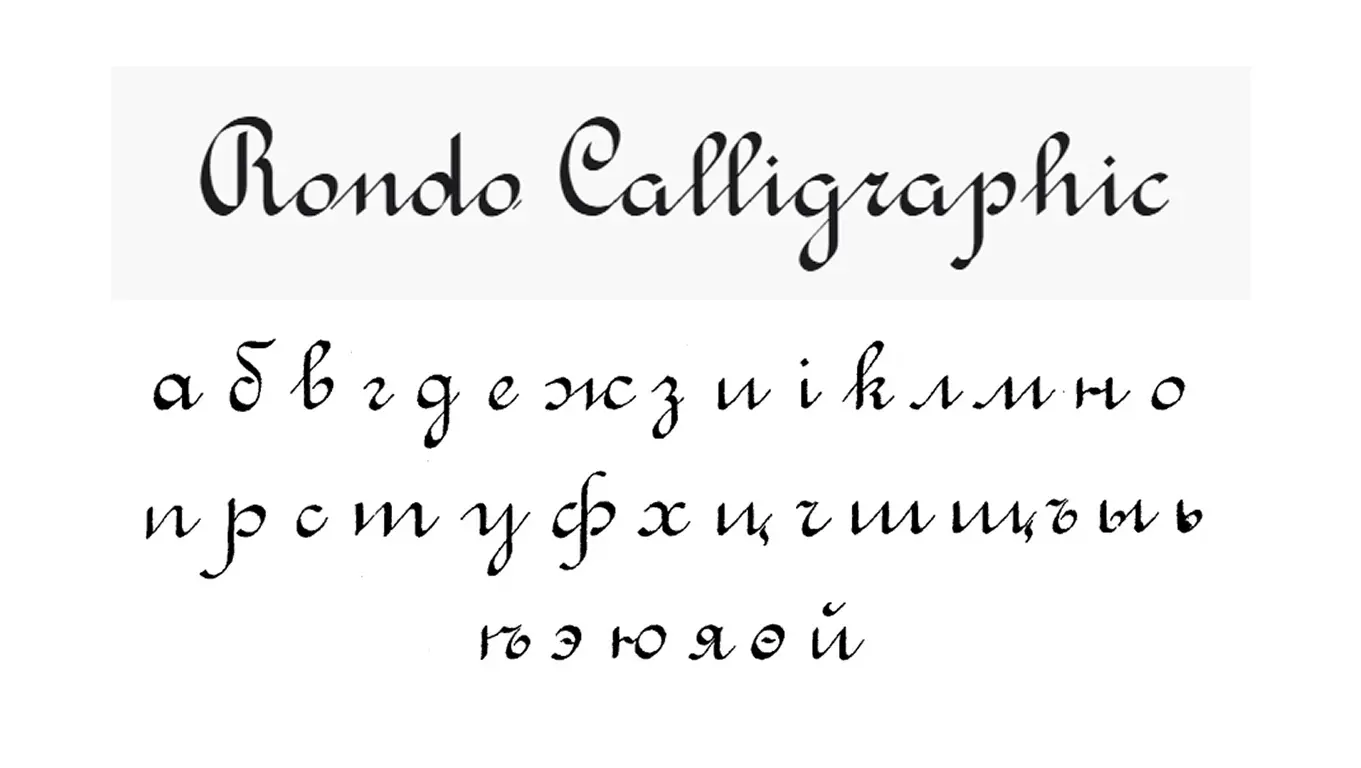 Rondo Calligraphic
а б в г д е ж з и і к л м н о
п р с т у ф х ц ч ш щ ъ ы ь
ѣ э ю я ѳ й